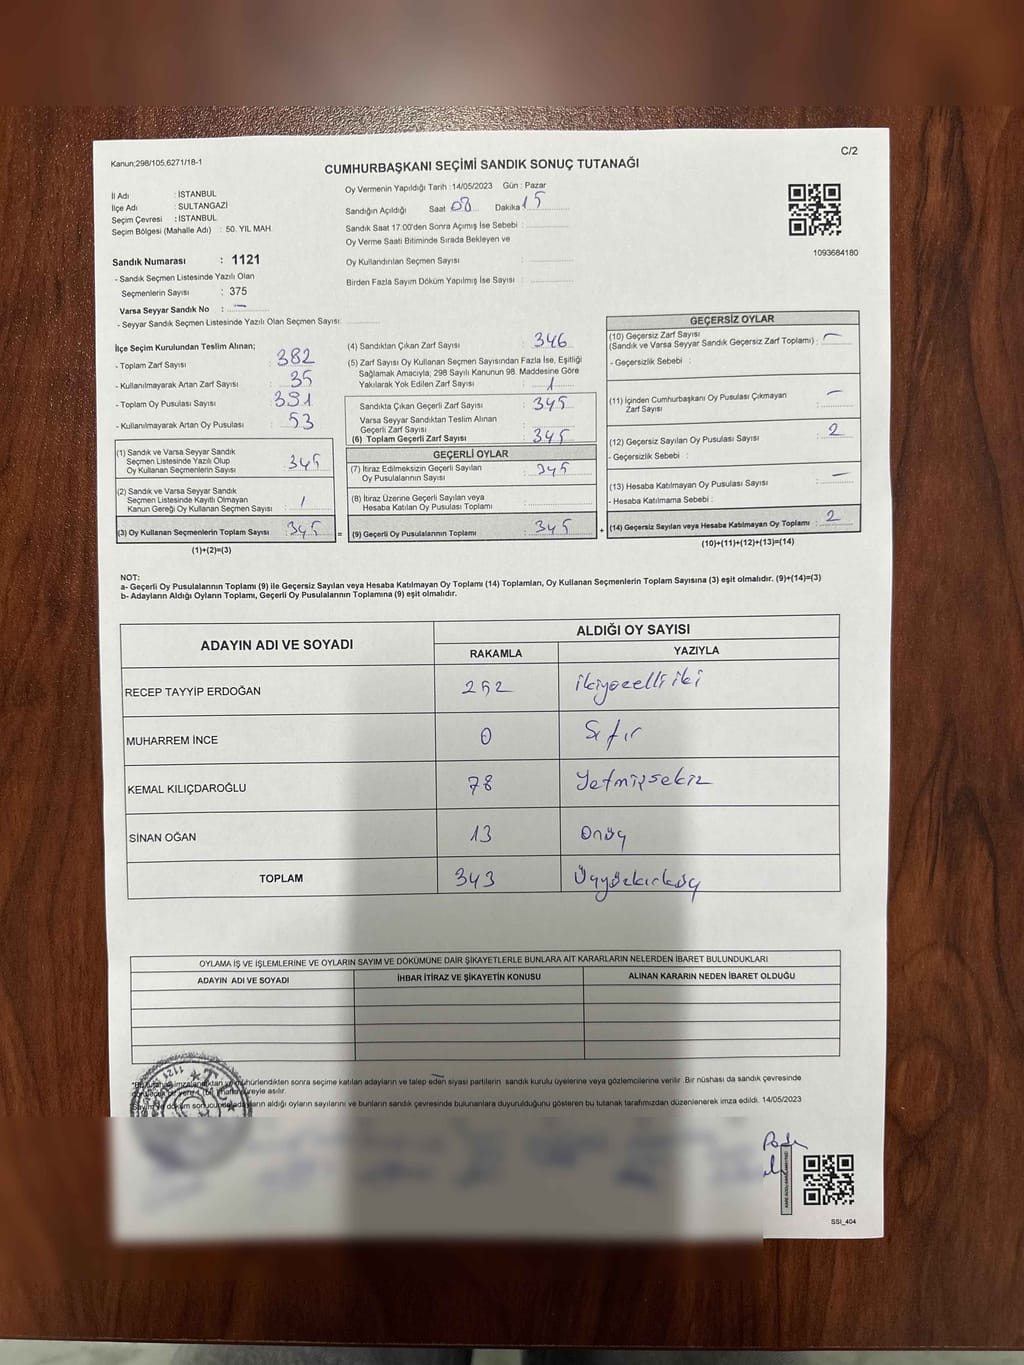 Kanun;298/105;6271/18-1
C/2
CUMHURBAŞKANI SEÇİMİ SANDIK SONUÇ TUTANAĞI
İl Adı : İSTANBUL
İlçe Adı : SULTANGAZİ
Seçim Çevresi : İSTANBUL
Seçim Bölgesi (Mahalle Adı) : 50. YIL MAH.
Oy Vermenin Yapıldığı Tarih :14/05/2023 Gün : Pazar
Sandığın Açıldığı Saat 08 Dakika 15
Sandık Saat 17:00'den Sonra Açımış İse Sebebi :
Oy Verme Saati Bitiminde Sırada Bekleyen ve
Oy Kullandırılan Seçmen Sayısı :
Birden Fazla Sayım Döküm Yapılmış İse Sayısı :
1093684180
Sandık Numarası : 1121
- Sandık Seçmen Listesinde Yazılı Olan
Seçmenlerin Sayısı : 375
Varsa Seyyar Sandık No : —
- Seyyar Sandık Seçmen Listesinde Yazılı Olan Seçmen Sayısı:
İlçe Seçim Kurulundan Teslim Alınan;
- Toplam Zarf Sayısı : 382
- Kullanılmayarak Artan Zarf Sayısı : 35
- Toplam Oy Pusulası Sayısı : 391
- Kullanılmayarak Artan Oy Pusulası : 53
(1) Sandık ve Varsa Seyyar Sandık
Seçmen Listesinde Yazılı Olup
Oy Kullanan Seçmenlerin Sayısı : 345
(2) Sandık ve Varsa Seyyar Sandık
Seçmen Listesinde Kayıtlı Olmayan
Kanun Gereği Oy Kullanan Seçmen Sayısı : /
(3) Oy Kullanan Seçmenlerin Toplam Sayısı : 345
(1)+(2)=(3)
(4) Sandıktan Çıkan Zarf Sayısı : 346
(5) Zarf Sayısı Oy Kullanan Seçmen Sayısından Fazla İse, Eşitliği
Sağlamak Amacıyla; 298 Sayılı Kanunun 98. Maddesine Göre
Yakılarak Yok Edilen Zarf Sayısı : 1
Sandıkta Çıkan Geçerli Zarf Sayısı : 345
Varsa Seyyar Sandıktan Teslim Alınan
Geçerli Zarf Sayısı :
(6) Toplam Geçerli Zarf Sayısı : 345
GEÇERLİ OYLAR
(7) İtiraz Edilmeksizin Geçerli Sayılan
Oy Pusulasının Sayısı : 345
(8) İtiraz Üzerine Geçerli Sayılan veya
Hesaba Katılan Oy Pusulası Toplamı :
= (9) Geçerli Oy Pusulalarının Toplamı : 345 +
GEÇERSİZ OYLAR
(10) Geçersiz Zarf Sayısı
(Sandık ve Varsa Seyyar Sandık Geçersiz Zarf Toplamı) : —
- Geçersizlik Sebebi :
(11) İçinden Cumhurbaşkanı Oy Pusulası Çıkmayan
Zarf Sayısı : —
(12) Geçersiz Sayılan Oy Pusulası Sayısı : 2
- Geçersizlik Sebebi :
(13) Hesaba Katılmayan Oy Pusulası Sayısı : —
- Hesaba Katılmama Sebebi :
(14) Geçersiz Sayılan veya Hesaba Katılmayan Oy Toplamı : 2
(10)+(11)+(12)+(13)=(14)
NOT:
a- Geçerli Oy Pusulalarının Toplamı (9) ile Geçersiz Sayılan veya Hesaba Katılmayan Oy Toplamı (14) Toplamları, Oy Kullanan Seçmenlerin Toplam Sayısına (3) eşit olmalıdır. (9)+(14)=(3)
b- Adayların Aldığı Oyların Toplamı, Geçerli Oy Pusulalarının Toplamına (9) eşit olmalıdır.
ADAYIN ADI VE SOYADI
ALDIĞI OY SAYISI
RAKAMLA YAZIYLA
RECEP TAYYİP ERDOĞAN 252 ikiyüzelliiki
MUHARREM İNCE 0 Sıfır
KEMAL KILIÇDAROĞLU 78 Yetmişsekiz
SİNAN OĞAN 13 Onüç
TOPLAM 343 Üçyüzkırküç
OYLAMA İŞ VE İŞLEMLERİNE VE OYLARIN SAYIM VE DÖKÜMÜNE DAİR ŞİKAYETLERLE BUNLARA AİT KARARLARIN NELERDEN İBARET BULUNDUKLARI
ADAYIN ADI VE SOYADI İHBAR İTİRAZ VE ŞİKAYETİN KONUSU ALINAN KARARIN NEDEN İBARET OLDUĞU
hürlendikten sonra seçime katılan adayların ve talep eden siyasi partilerin sandık kurulu üyelerine veya gözlemcilerine verilir .Bir nüshası da sandık çevresinde
süreyle asılır.
Sayım ve döküm sonucunda adayların aldığı oyların sayılarını ve bunların sandık çevresinde bulunanlara duyurulduğunu gösteren bu tutanak tarafımızdan düzenlenerek imza edildi. 14/05/2023
1121 T.C.
SSI_404